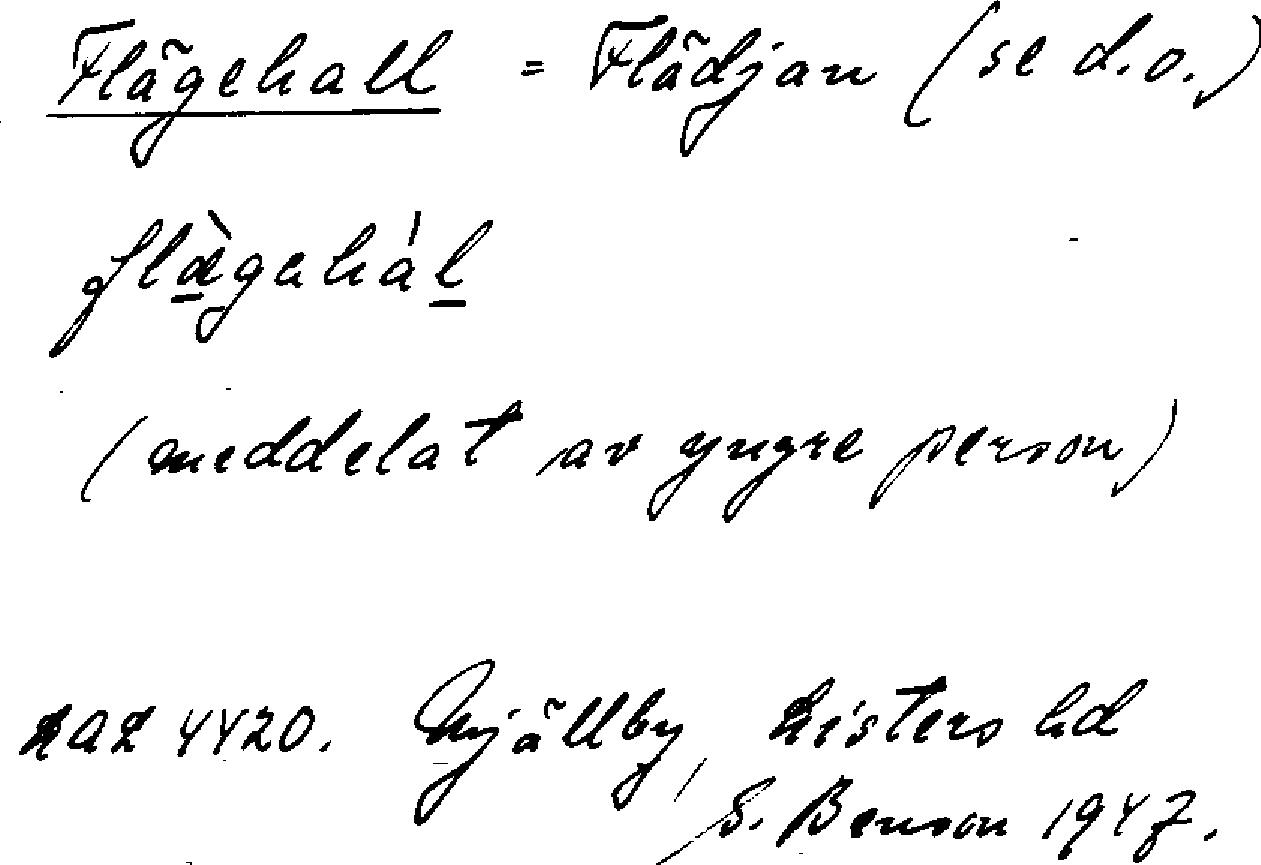 Flägehall = Flädjan (se d.o.)
flæ̀gehál
(meddelat av yngre person)
LAL 4420. Mjällby, Listers hd
S. Benson 1947.